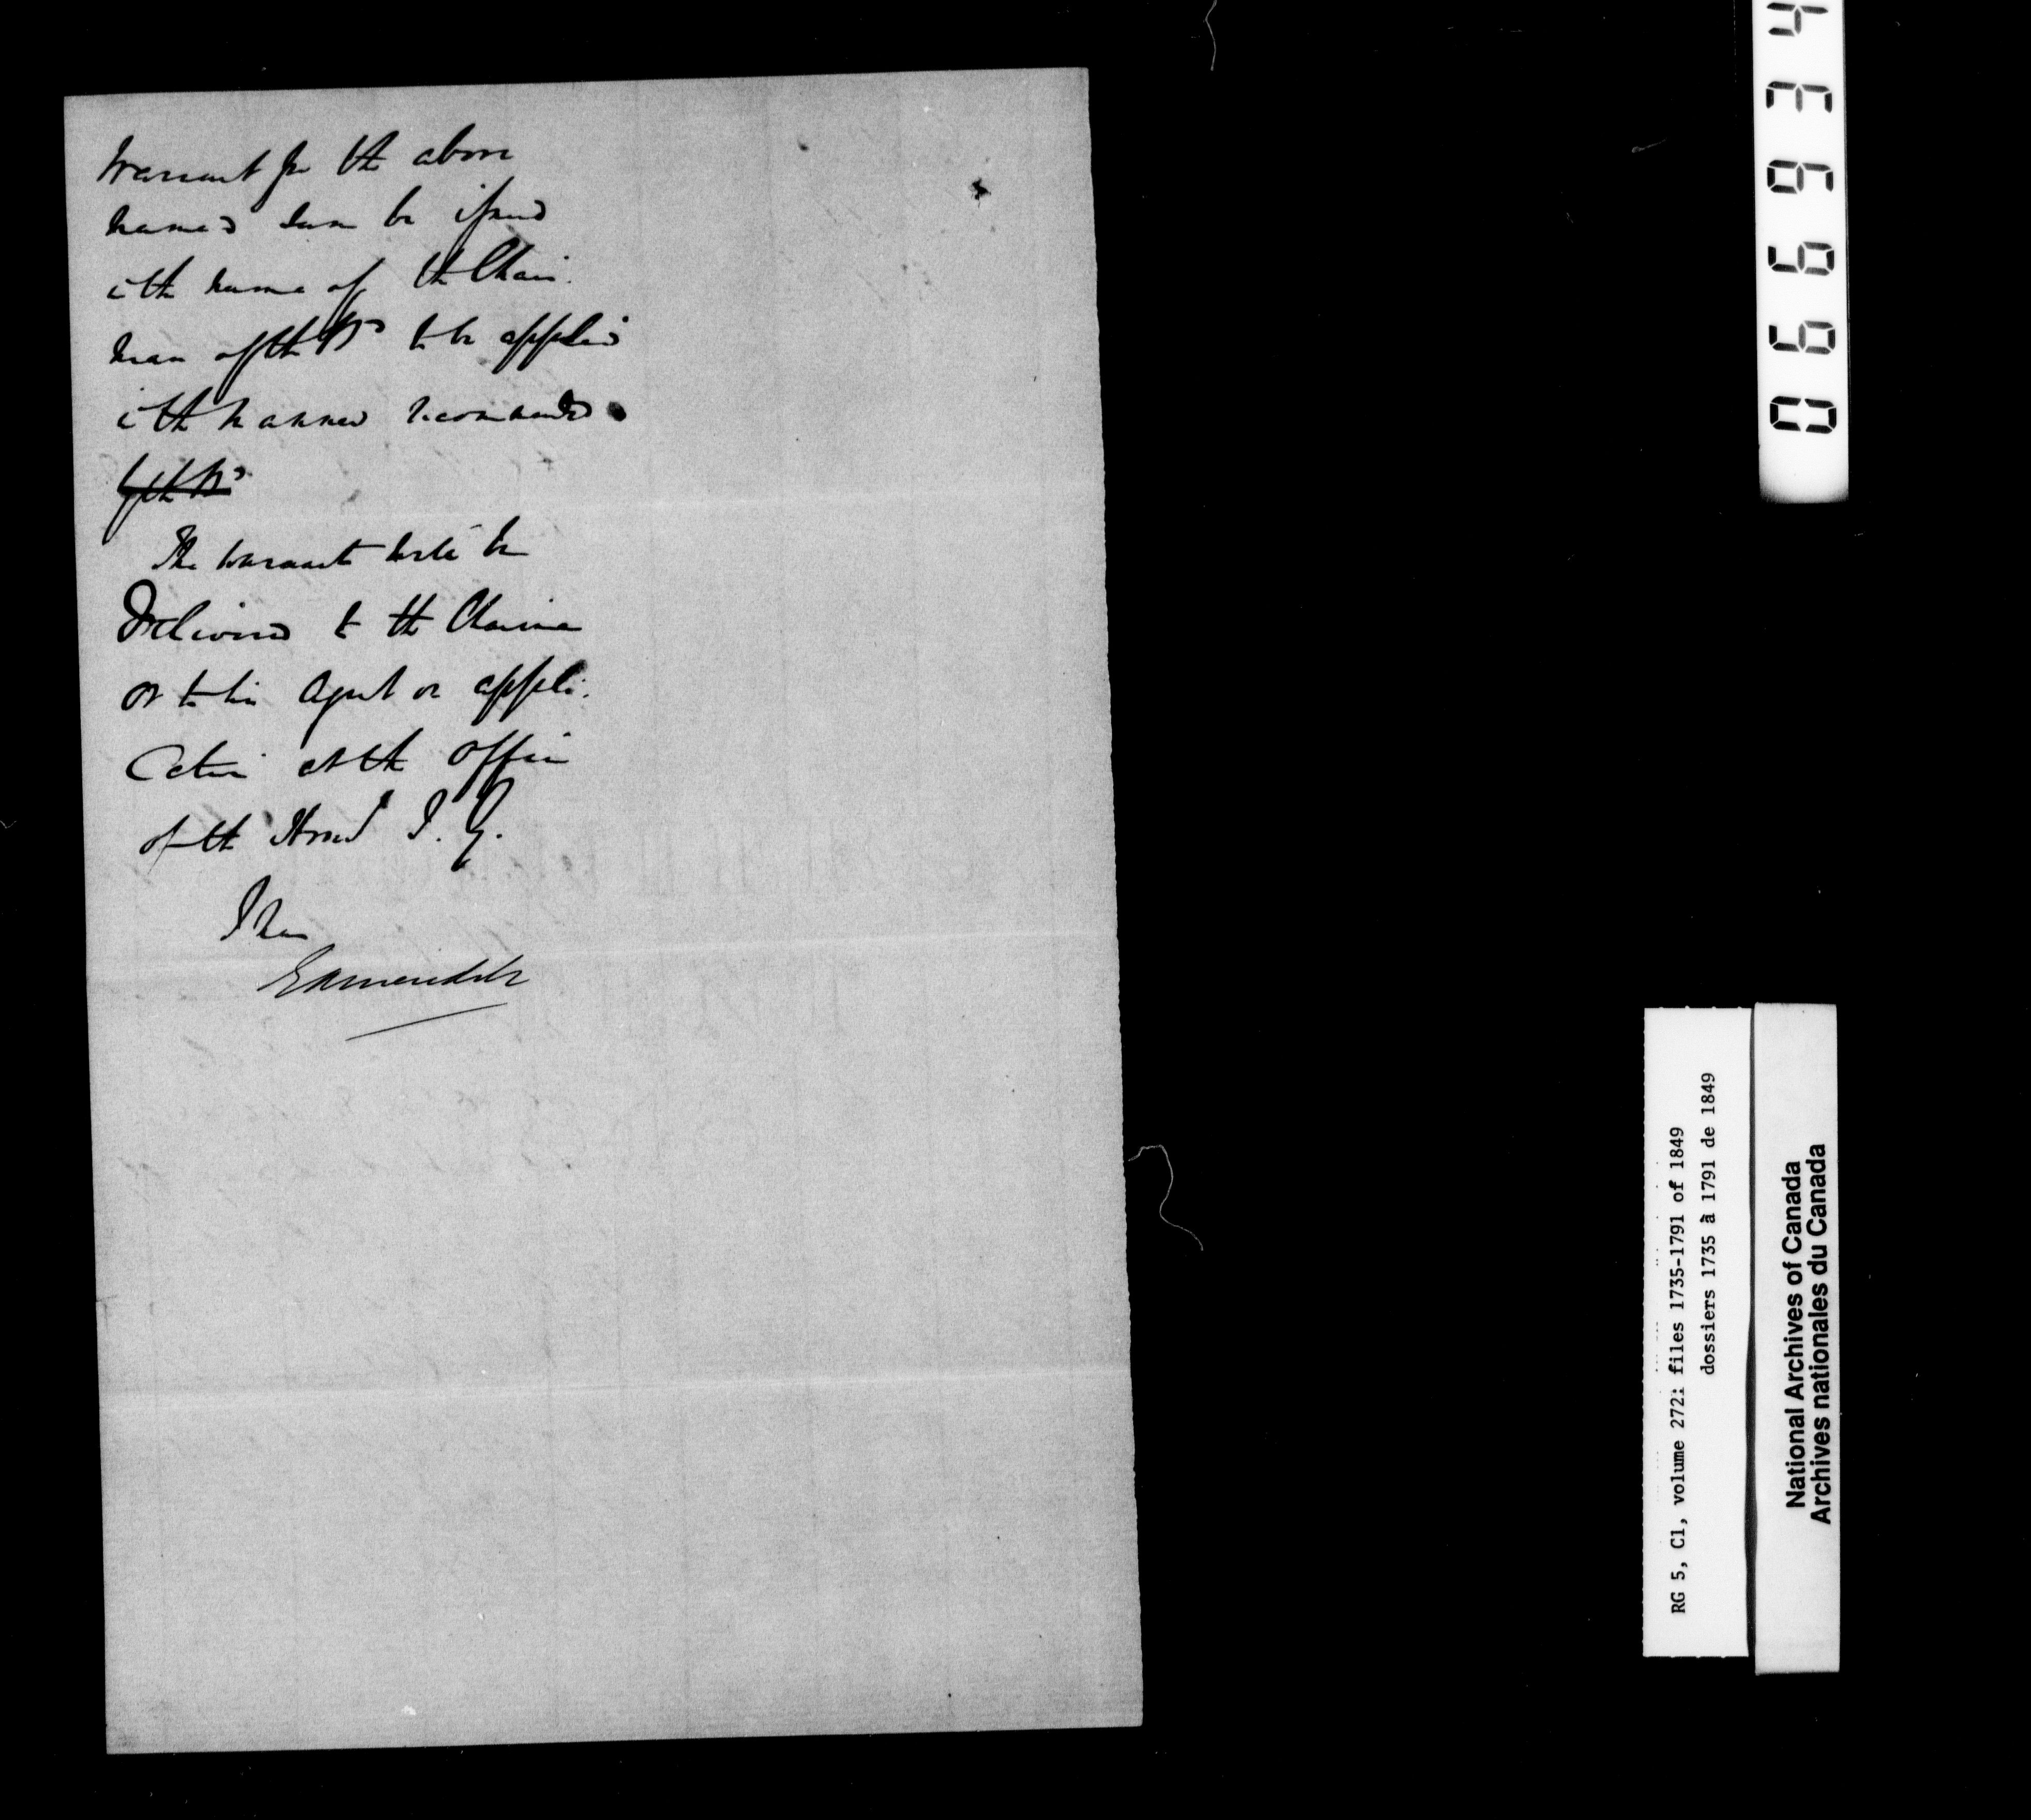 Warrant for the above
named sum be issued
i the name of the Chair-
man of the Bd to be applied
i the manner recommended
by the Bd
The warrant will be
Delivered to the Chairman
or to his Agent on appli-
cation at the Office
of the Honbl I. G.
I have
E A Meredith
066934
RG 5, C1, volume 272: files 1735-1791 of 1849
dossiers 1735 à 1791 de 1849
National Archives of Canada
Archives nationales du Canada